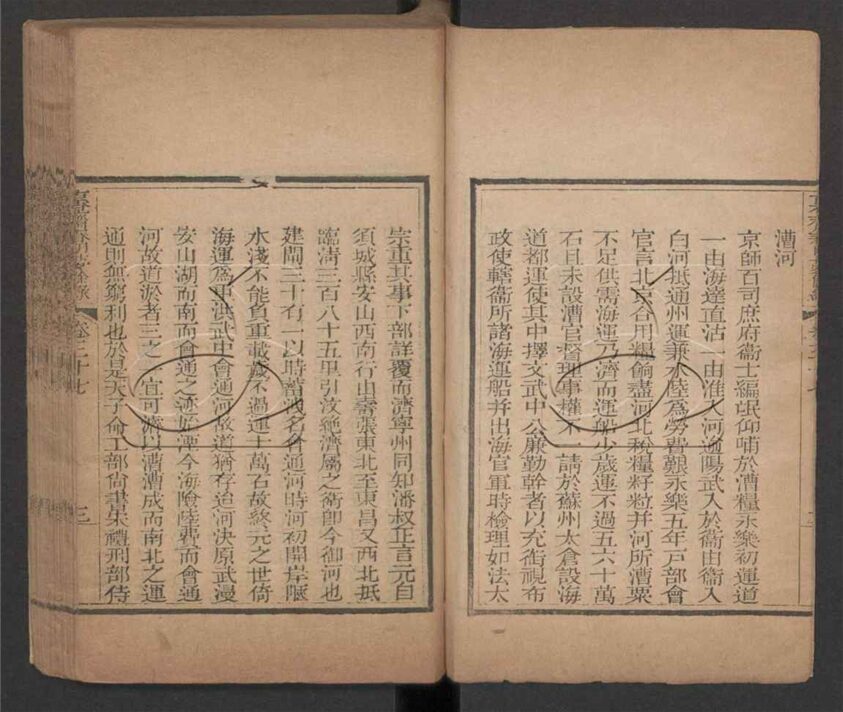 漕河
京師百司庶府衞士編氓仰哺於漕糧永樂初運道
一由海達直沽一由淮入河過陽武入於衞由衞入
白河抵通州運兼水陸爲勞費艱永樂五年戸部會
官言北京合用糧餉盡河北稅糧籽粒并河所漕粟
不足供需海運乃濟而運船少歲運不過五六十萬
石且未設漕官督理事權不一請於蘇州太倉設海
道都運使其中擇文武中公廉勤幹者以充銜視布
政使轄衞所諸海運船并出海官軍時檢理如法太
宗重其事下部詳覆而濟寧州同知潘叔正言元自
須城縣安山西南行山壽張東北至東昌又西北抵
臨淸三百八十五里引汶絶濟屬之衞卽今御河也
建閘三十有一以時蓄洩名會通河時河初開岸陿
水淺不能負重載歲不過運十萬石故終元之世倚
海運爲重洪武中會通河故道猶存迨河決原武漫
安山湖而南而會通之迹始湮今海險陸費而會通
河故道淤者三之一宜可濬以漕漕成而南北之運
通則無窮利也於是天子命工部尚書宋禮刑部侍
卷三十七
三